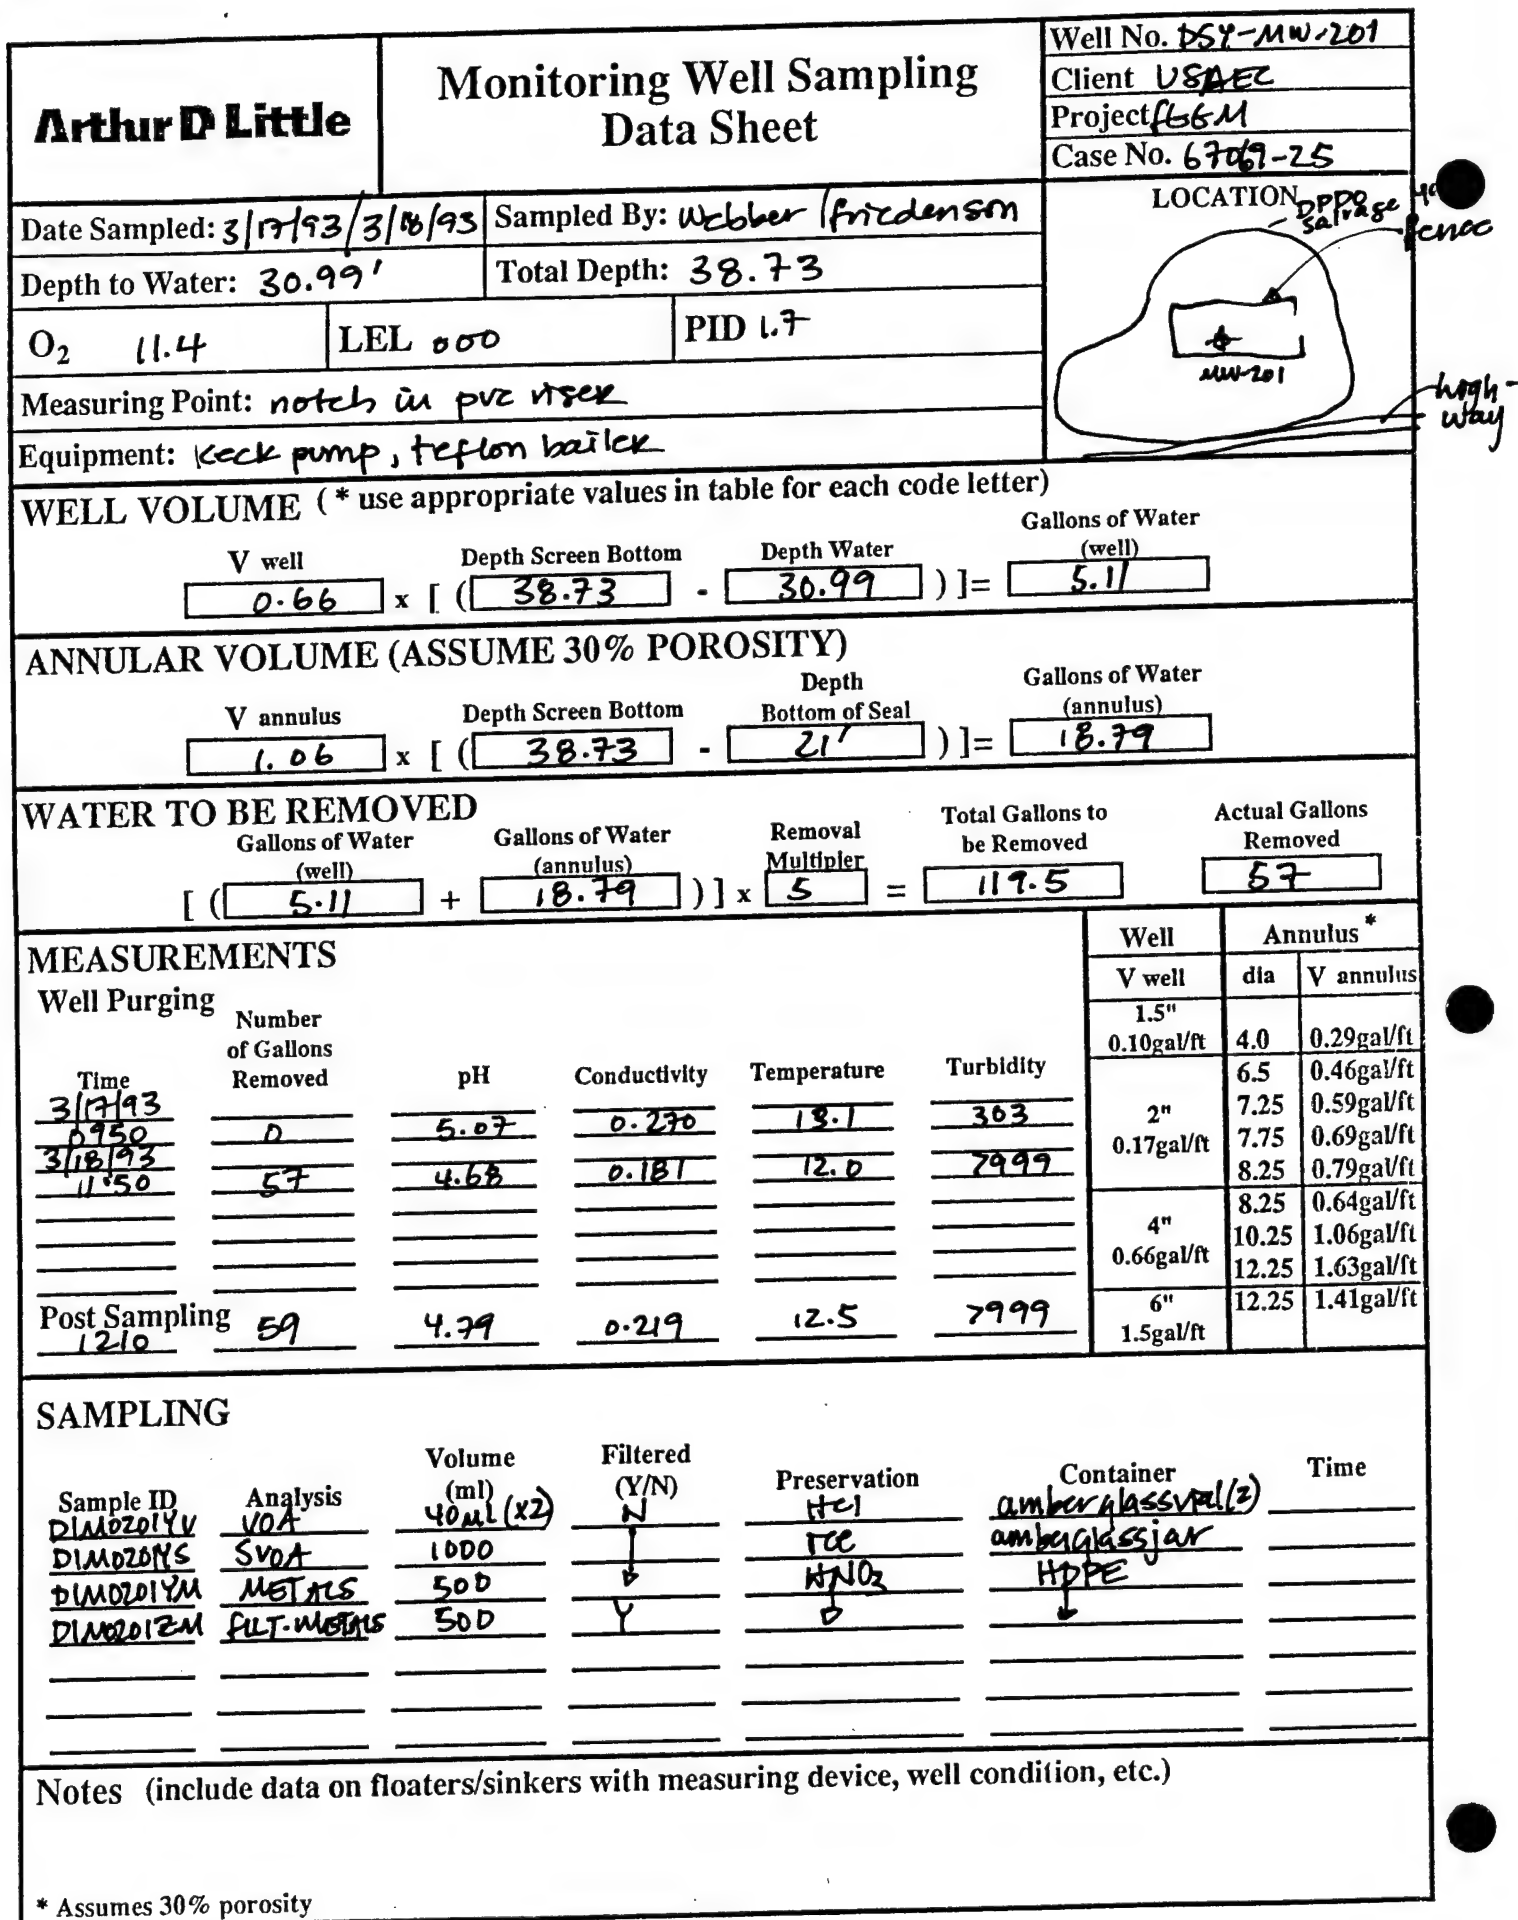 Arthur D Little
Monitoring Well Sampling
Data Sheet
Well No. DSY-MW-201
Client USAEC
Project FGGM
Case No. 67069-25
Date Sampled: 3/17/93/3/18/93
Sampled By: Webber/friedenson
LOCATION
DPDO
salvage
fence
MW-201
high-
way
Depth to Water: 30.99'
Total Depth: 38.73
O2 11.4
LEL 000
PID 1.7
Measuring Point: notch in pvc riser
Equipment: Keck pump, teflon bailer
WELL VOLUME (* use appropriate values in table for each code letter)
V well Depth Screen Bottom Depth Water Gallons of Water (well)
0.66 x [ ( 38.73 - 30.99 ) ]= 5.11
ANNULAR VOLUME (ASSUME 30% POROSITY)
V annulus Depth Screen Bottom Depth Bottom of Seal Gallons of Water (annulus)
1.06 x [ ( 38.73 - 21' ) ]= 18.79
WATER TO BE REMOVED
Gallons of Water (well) Gallons of Water (annulus) Removal Multipler Total Gallons to be Removed Actual Gallons Removed
[ ( 5.11 + 18.79 ) ] x 5 = 119.5 57
MEASUREMENTS
Well Purging
Time Number of Gallons Removed pH Conductivity Temperature Turbidity
3/17/93
0950 0 5.07 0.270 13.1 303
3/18/93
11:50 57 4.68 0.187 12.0 >999
Post Sampling
1210 59 4.79 0.219 12.5 >999
Well Annulus *
V well dia V annulus
1.5"
0.10gal/ft 4.0 0.29gal/ft
6.5 0.46gal/ft
2" 7.25 0.59gal/ft
0.17gal/ft 7.75 0.69gal/ft
8.25 0.79gal/ft
8.25 0.64gal/ft
4" 10.25 1.06gal/ft
0.66gal/ft 12.25 1.63gal/ft
6" 12.25 1.41gal/ft
1.5gal/ft
SAMPLING
Sample ID Analysis Volume (ml) Filtered (Y/N) Preservation Container Time
D1M0201YV VOA 40ml (x2) N HCl amber glass vial(2)
D1M0201YS SVOA 1000 ICE amber glass jar
D1M0201YM METALS 500 HNO3 HDPE
D1M0201ZM FILT-METALS 500 Y
Notes (include data on floaters/sinkers with measuring device, well condition, etc.)
* Assumes 30% porosity